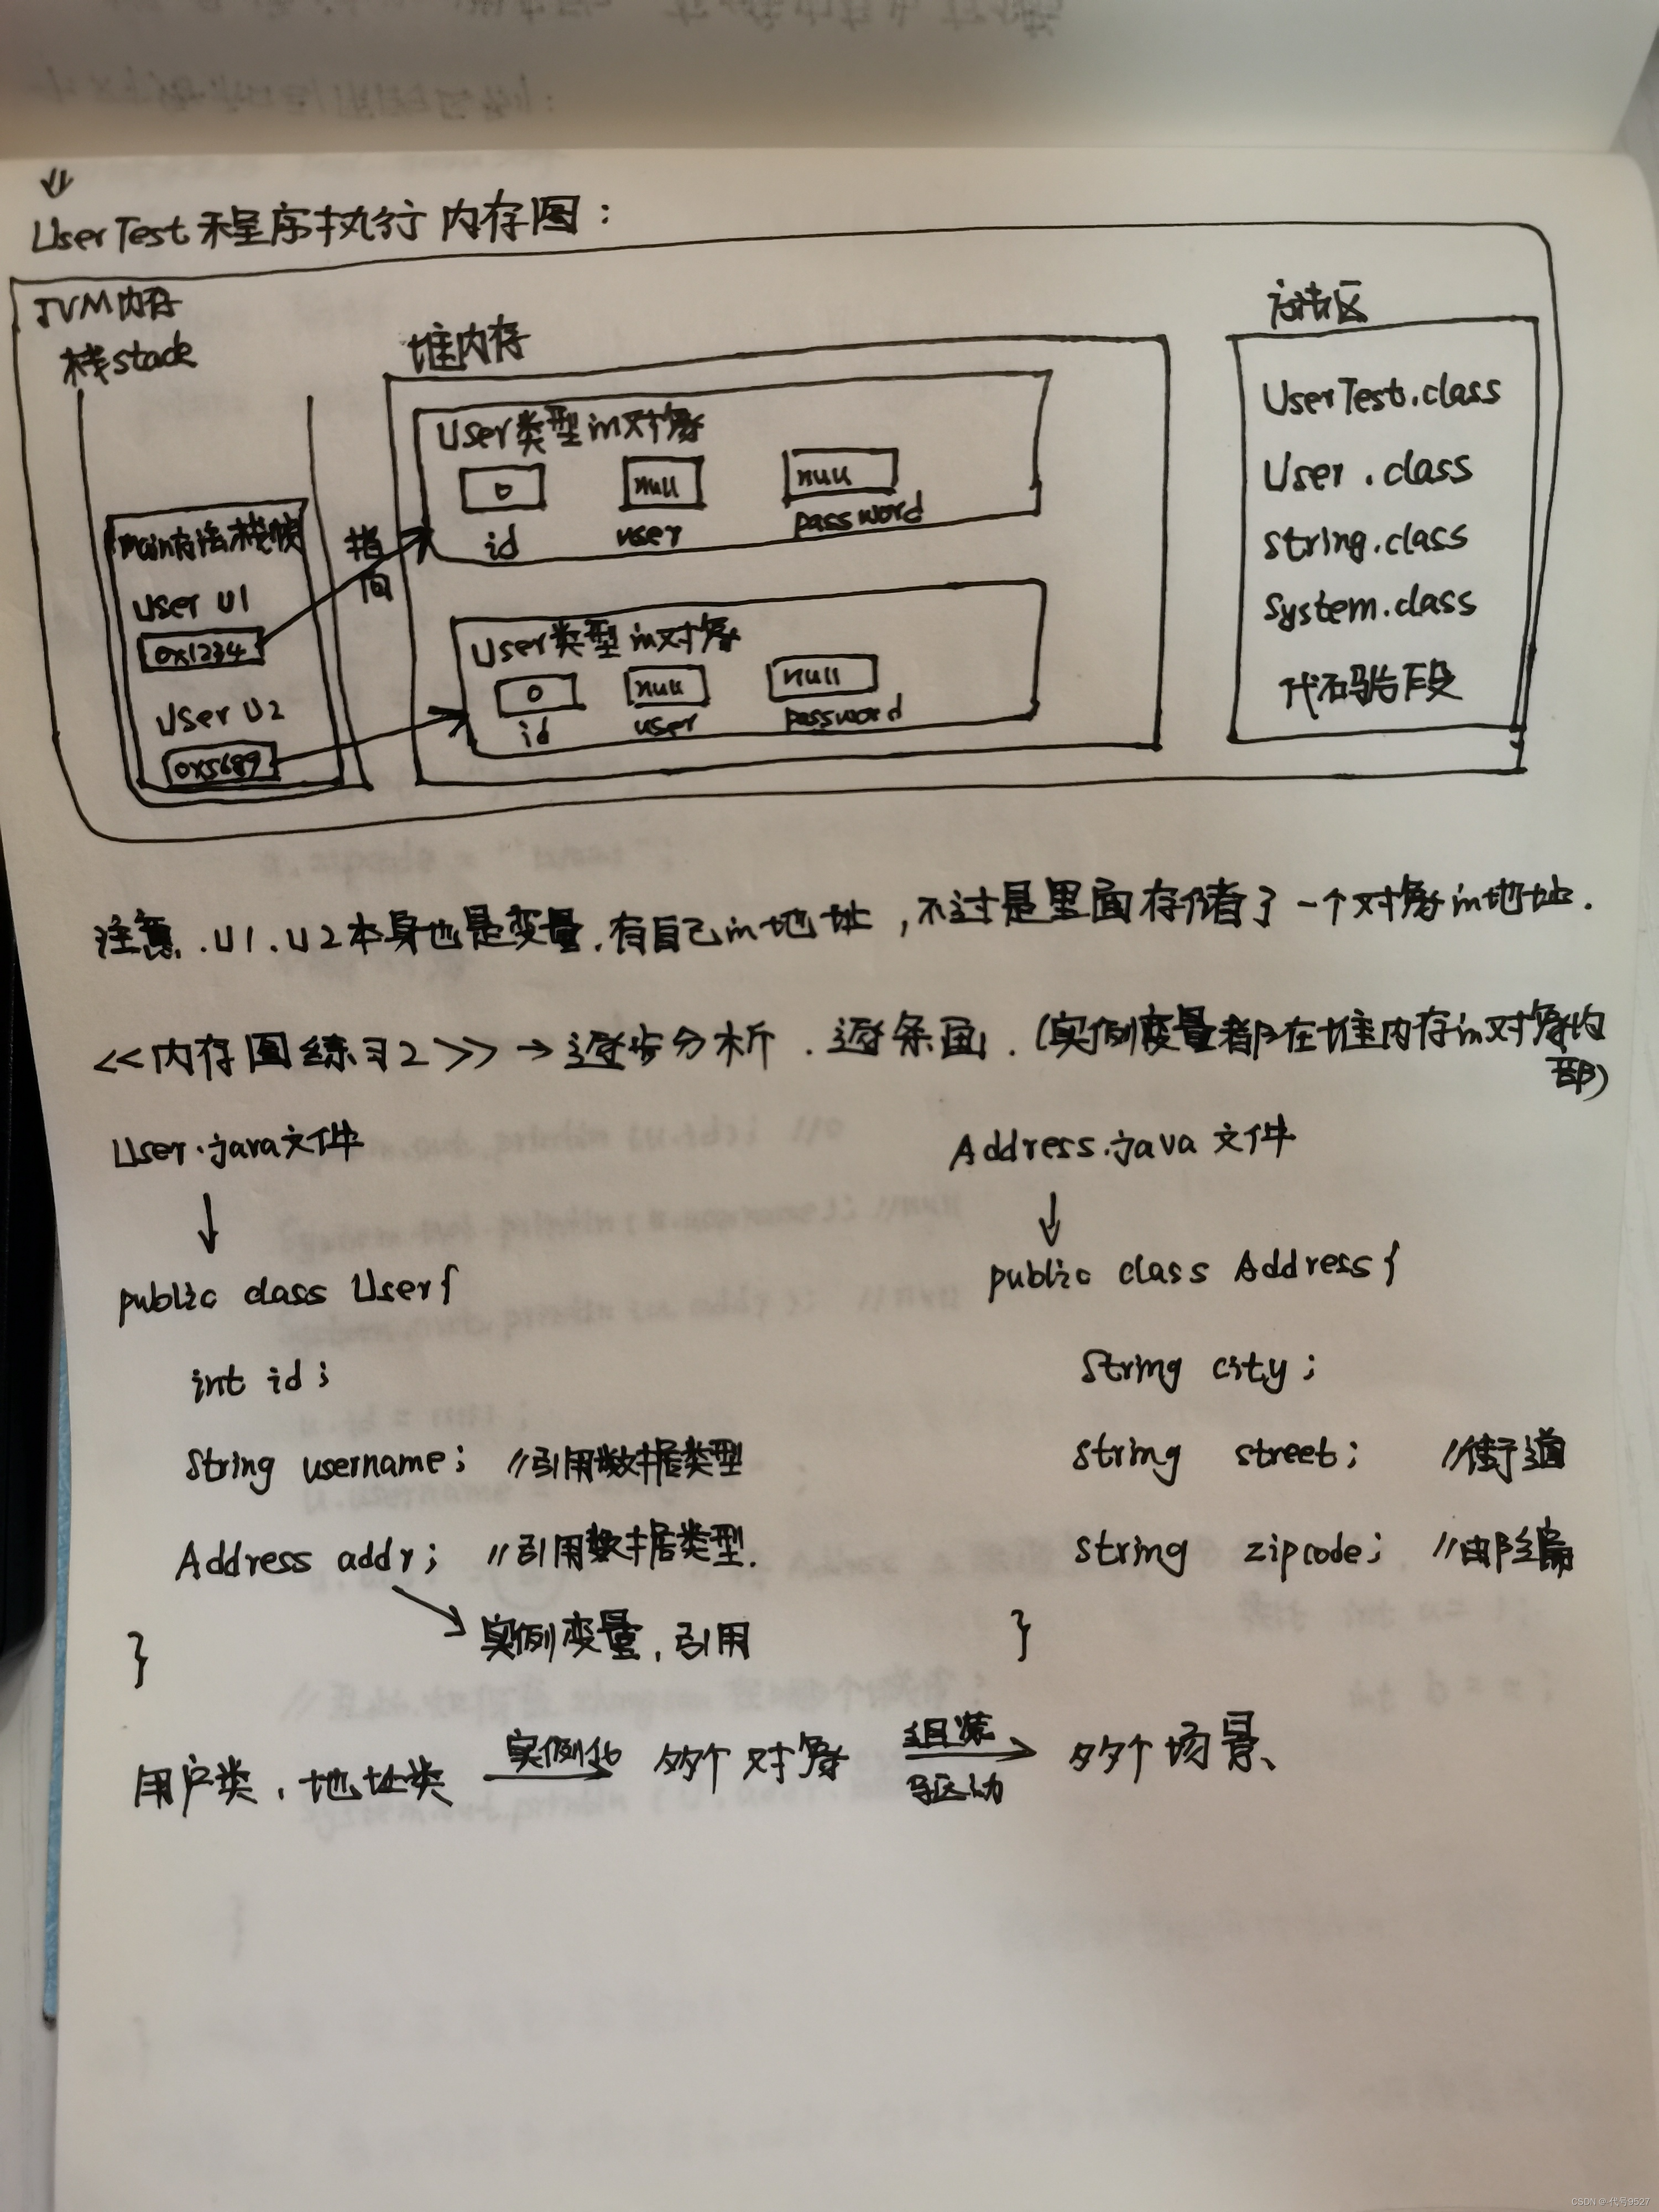 UserTest程序执行内存图：
JVM内存
栈stack
堆内存
方法区
main方法栈帧
User U1
0x1234
User U2
0x5689
指向
User类型的对象
0
null
null
id
user
password
User类型的对象
0
null
null
id
user
password
UserTest.class
User.class
String.class
System.class
代码片段
注意.U1.U2本身也是变量.有自己的地址，不过是里面存储了一个对象的地址.
<<内存图练习2>>→逐步分析.逐条画.(实例变量都在堆内存的对象内
部)
User.java文件
Address.java文件
↓
↓
public class User{
public class Address{
int id;
String city;
String username; //引用数据类型
String street; //街道
Address addr; //引用数据类型.
String zipcode; //邮编
实例变量,引用
}
}
用户类、地址类 实例化 多个对象 组装 驱动 多个场景、
CSDN @-代号9527